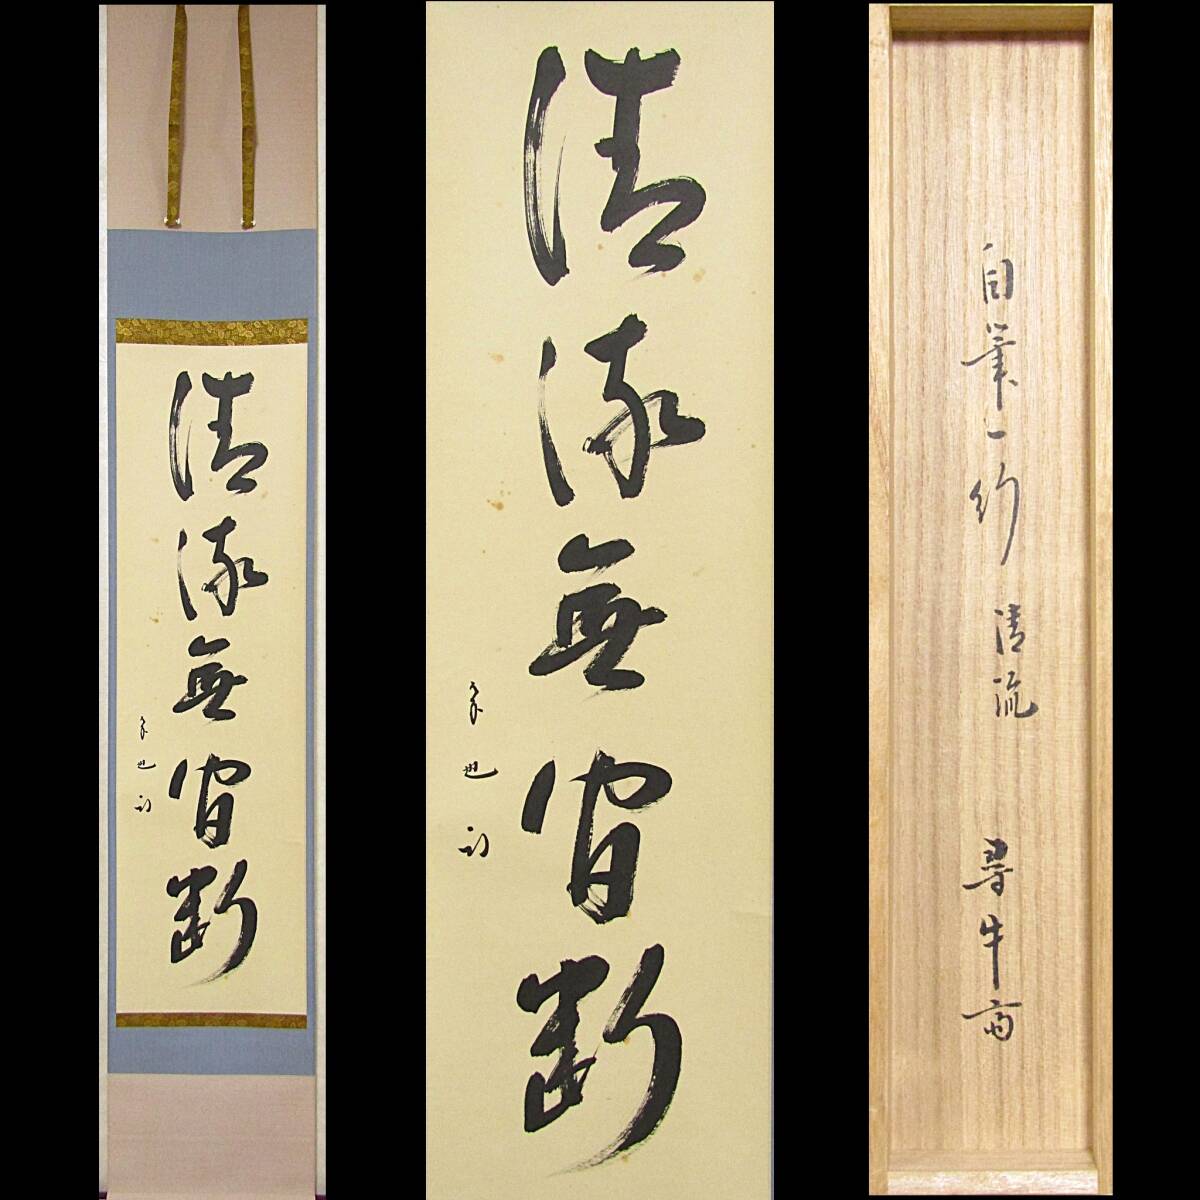 清流無間断
清流無間断
自筆一行 清流 尋牛斎